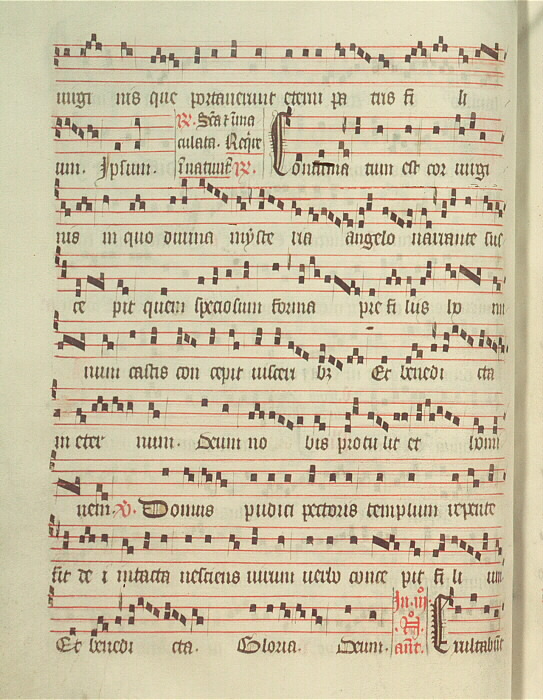 uirgi nis que portauerunt eterni pa tris fi li
um. Ipsum. R. Sca t ima
culata. Req̄re
ī natiuit R. Confirma tum est cor uirgi
nis in quo diuina myste ria angelo narrante sus
ce pit quem speciosum forma pre fi liis ho mi
num castis con cepit uisceri bꝫ Et benedi cta
in eter num. Deum no bis protu lit et homi
nem. V. Domus pudici pectoris templum repente
fit de i intacta nesciens uirum uerbo conce pit fi li um
Et benedi cta. Gloria. Deum. In iii.
N
añt. Exultabūt